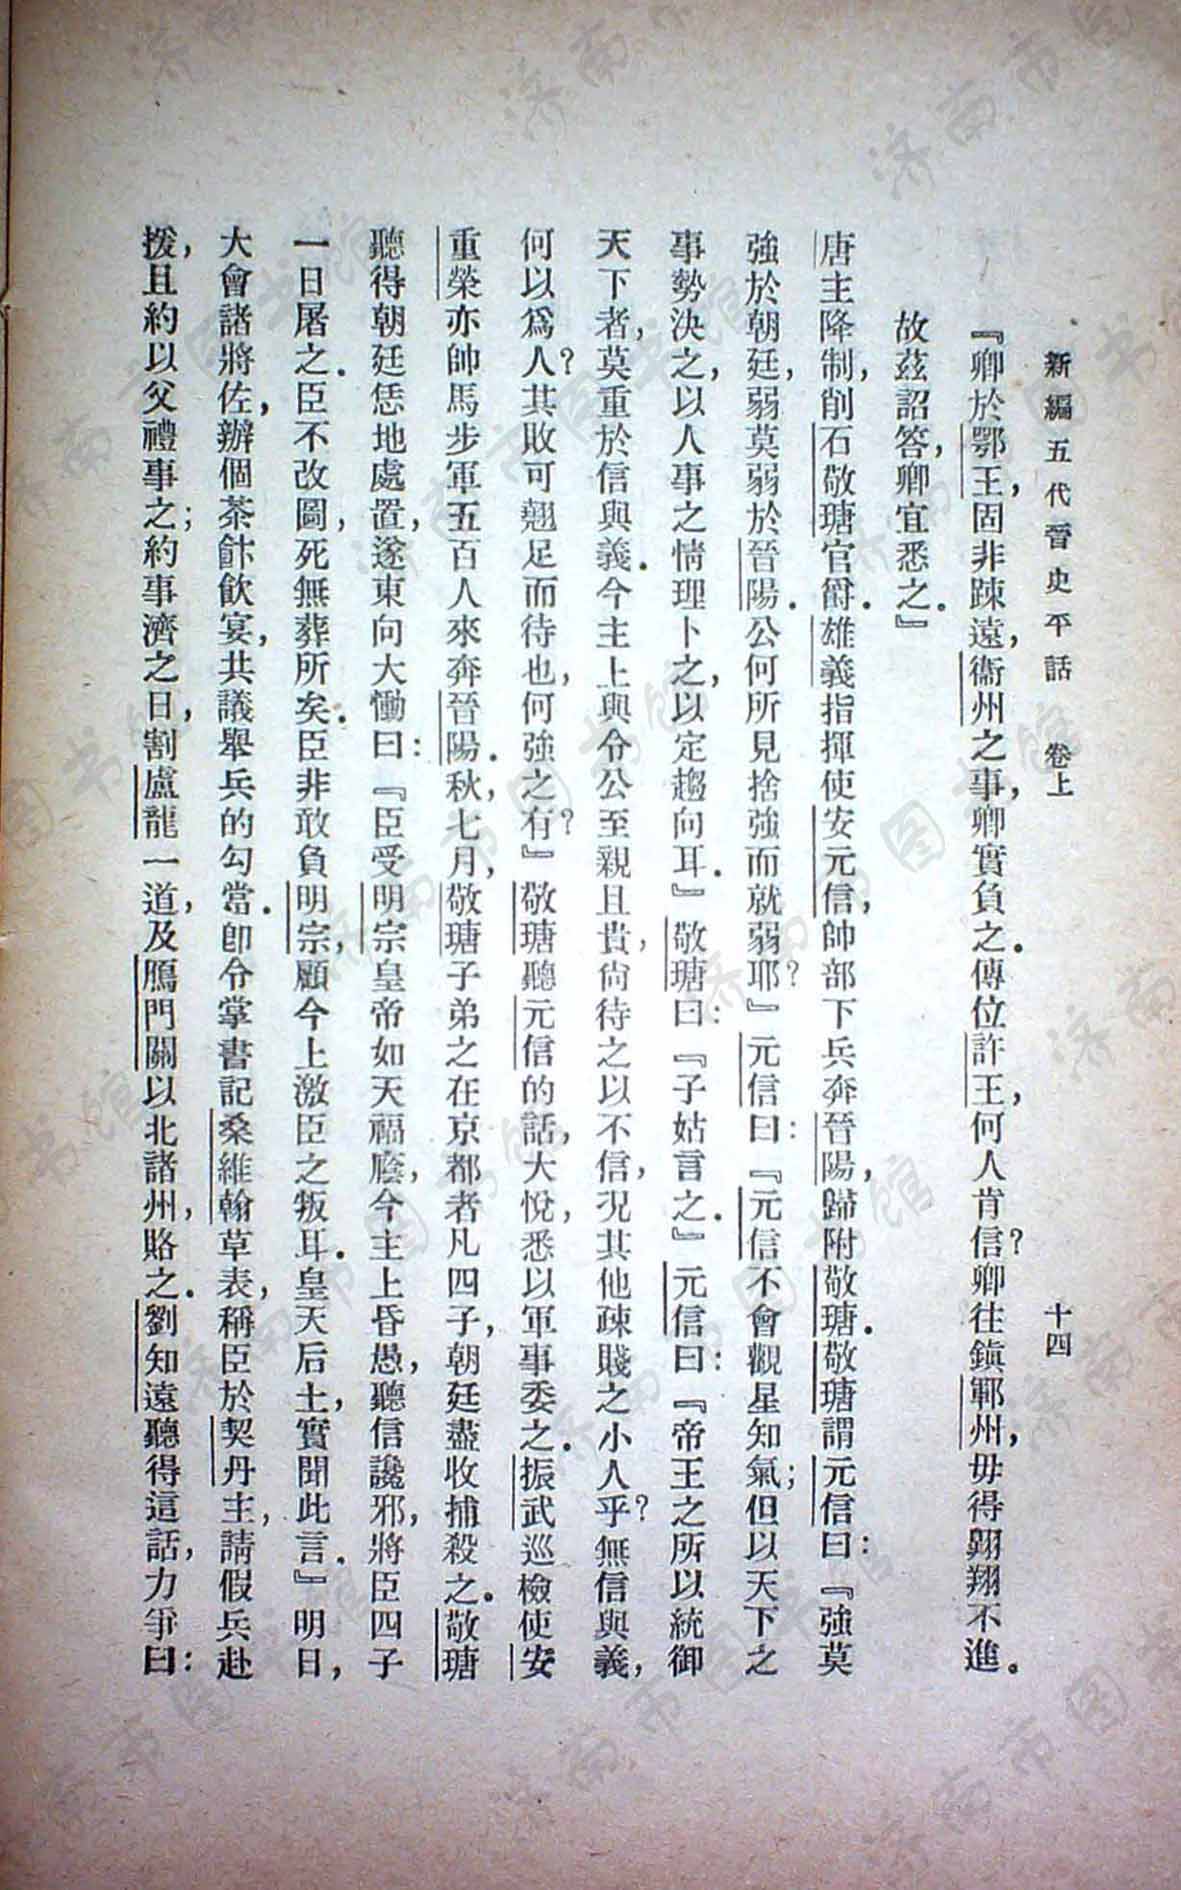 新編五代晉史平話　卷上　十四
『卿於鄂王，固非踈遠，衞州之事，卿實負之．傳位許王，何人肯信？卿往鎭鄆州，毋得翺翔不進．
故茲詔答，卿宜悉之．』
唐主降制，削石敬瑭官爵．雄義指揮使安元信，帥部下兵奔晉陽，歸附敬瑭．敬瑭謂元信曰：『強莫
強於朝廷，弱莫弱於晉陽．公何所見捨強而就弱耶？』元信曰：『元信不會觀星知氣；但以天下之
事勢決之，以人事之情理卜之，以定趨向耳．』敬瑭曰：『子姑言之．』元信曰：『帝王之所以統御
天下者，莫重於信與義．今主上與令公至親且貴，尙待之以不信，况其他疎賤之小人乎？無信與義，
何以爲人？其敗可翹足而待也，何強之有？』敬瑭聽元信的話，大悅，悉以軍事委之．振武巡檢使安
重榮亦帥馬步軍五百人來奔晉陽．秋，七月，敬瑭子弟之在京都者凡四子，朝廷盡收捕殺之．敬瑭
聽得朝廷恁地處置，遂東向大慟曰：『臣受明宗皇帝如天福廕，今主上昏愚，聽信讒邪，將臣四子
一日屠之．臣不改圖，死無葬所矣．臣非敢負明宗，顧今上激臣之叛耳．皇天后土，實聞此言．』明日，
大會諸將佐，辦個茶飰飮宴，共議舉兵的勾當．卽令掌書記桑維翰草表，稱臣於契丹主，請假兵赴
援，且約以父禮事之；約事濟之日，割盧龍一道，及鴈門關以北諸州，賂之．劉知遠聽得這話，力爭曰：
济南市图书馆